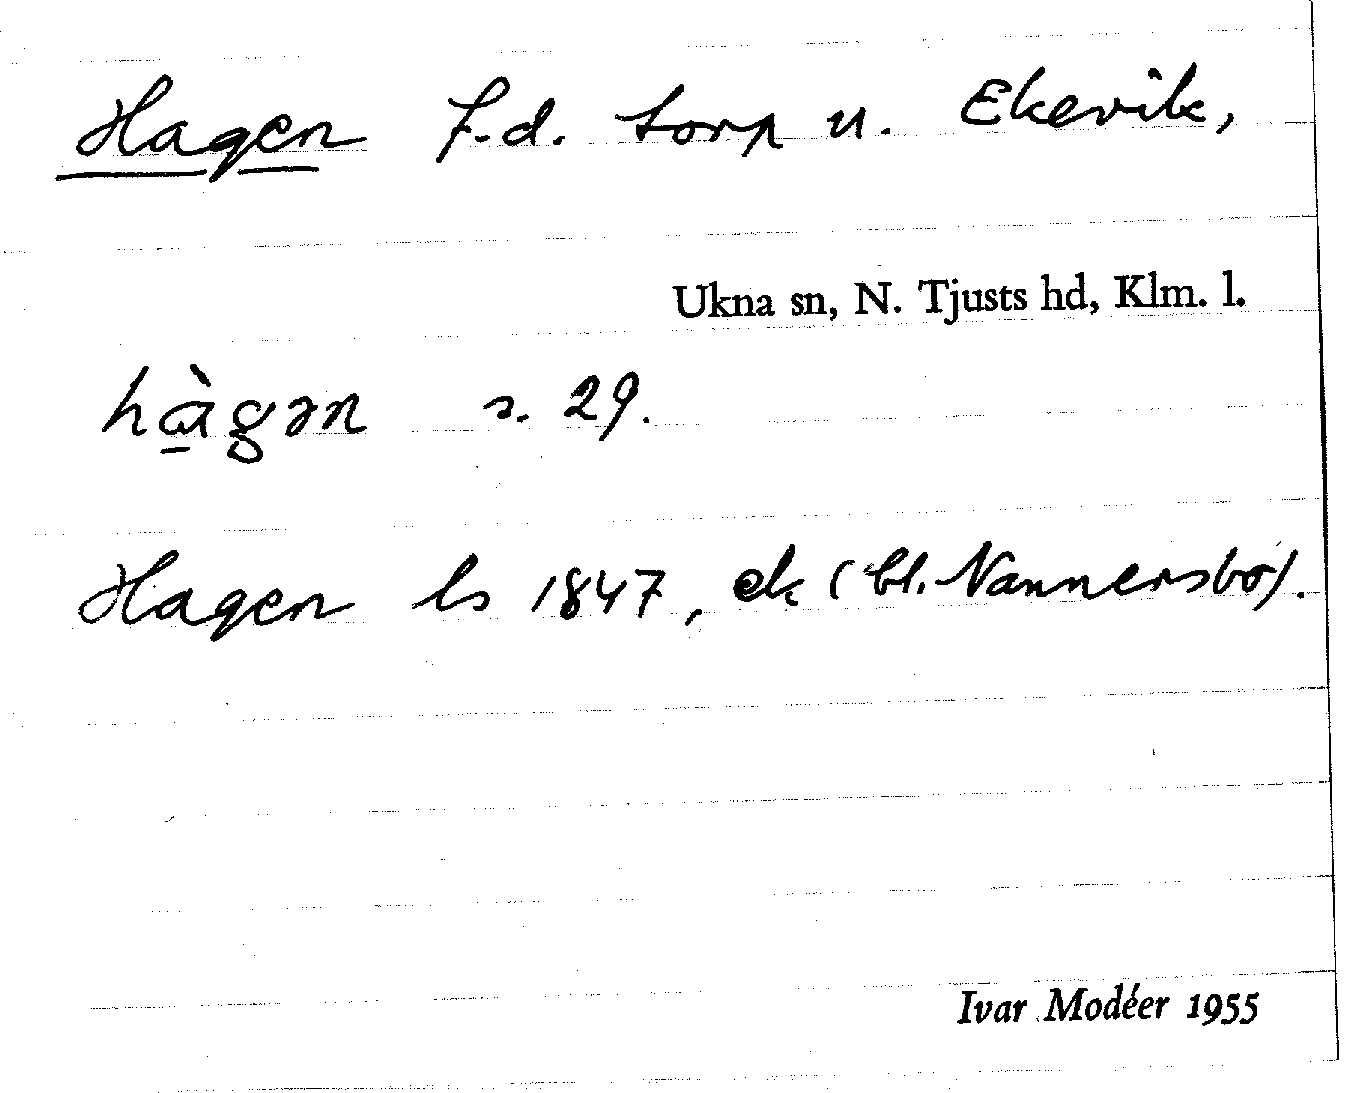 Hagen f.d. torp u. Ekevik,
Ukna sn, N. Tjusts hd, Klm. l.
hὰ̠gən s. 29.
Hagen ls 1847, ek (bl. Nannersbo).
Ivar Modéer 1955